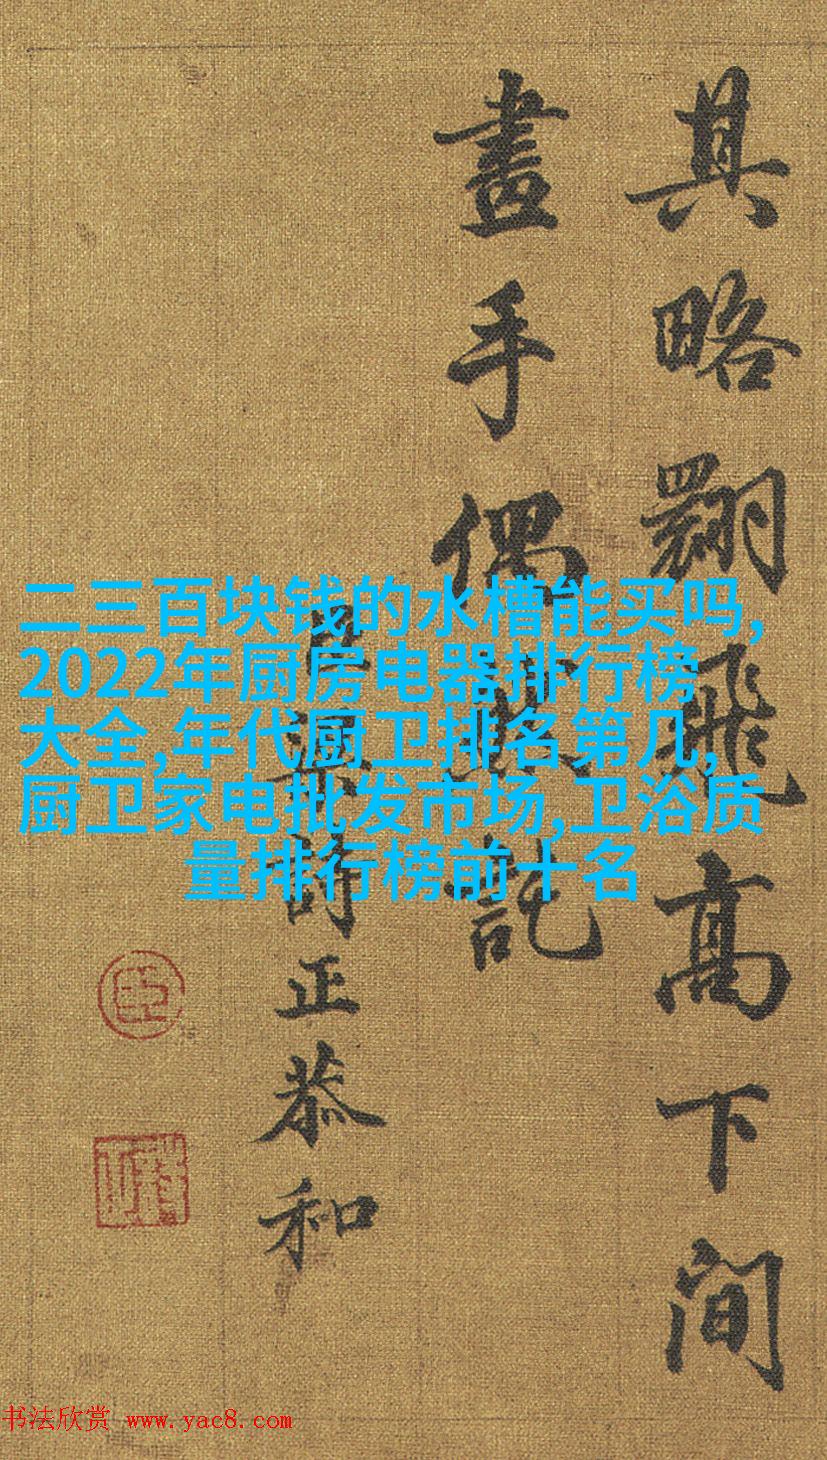 其略翾飛高下間
畫手偶然託
臣梁詩正恭和
臣
二三百块钱的水槽能买吗,
2022年厨房电器排行榜
大全,年代厨卫排名第几,
厨卫家电批发市场,卫浴质
量排行榜前十名
书法欣赏 www.yac8.com